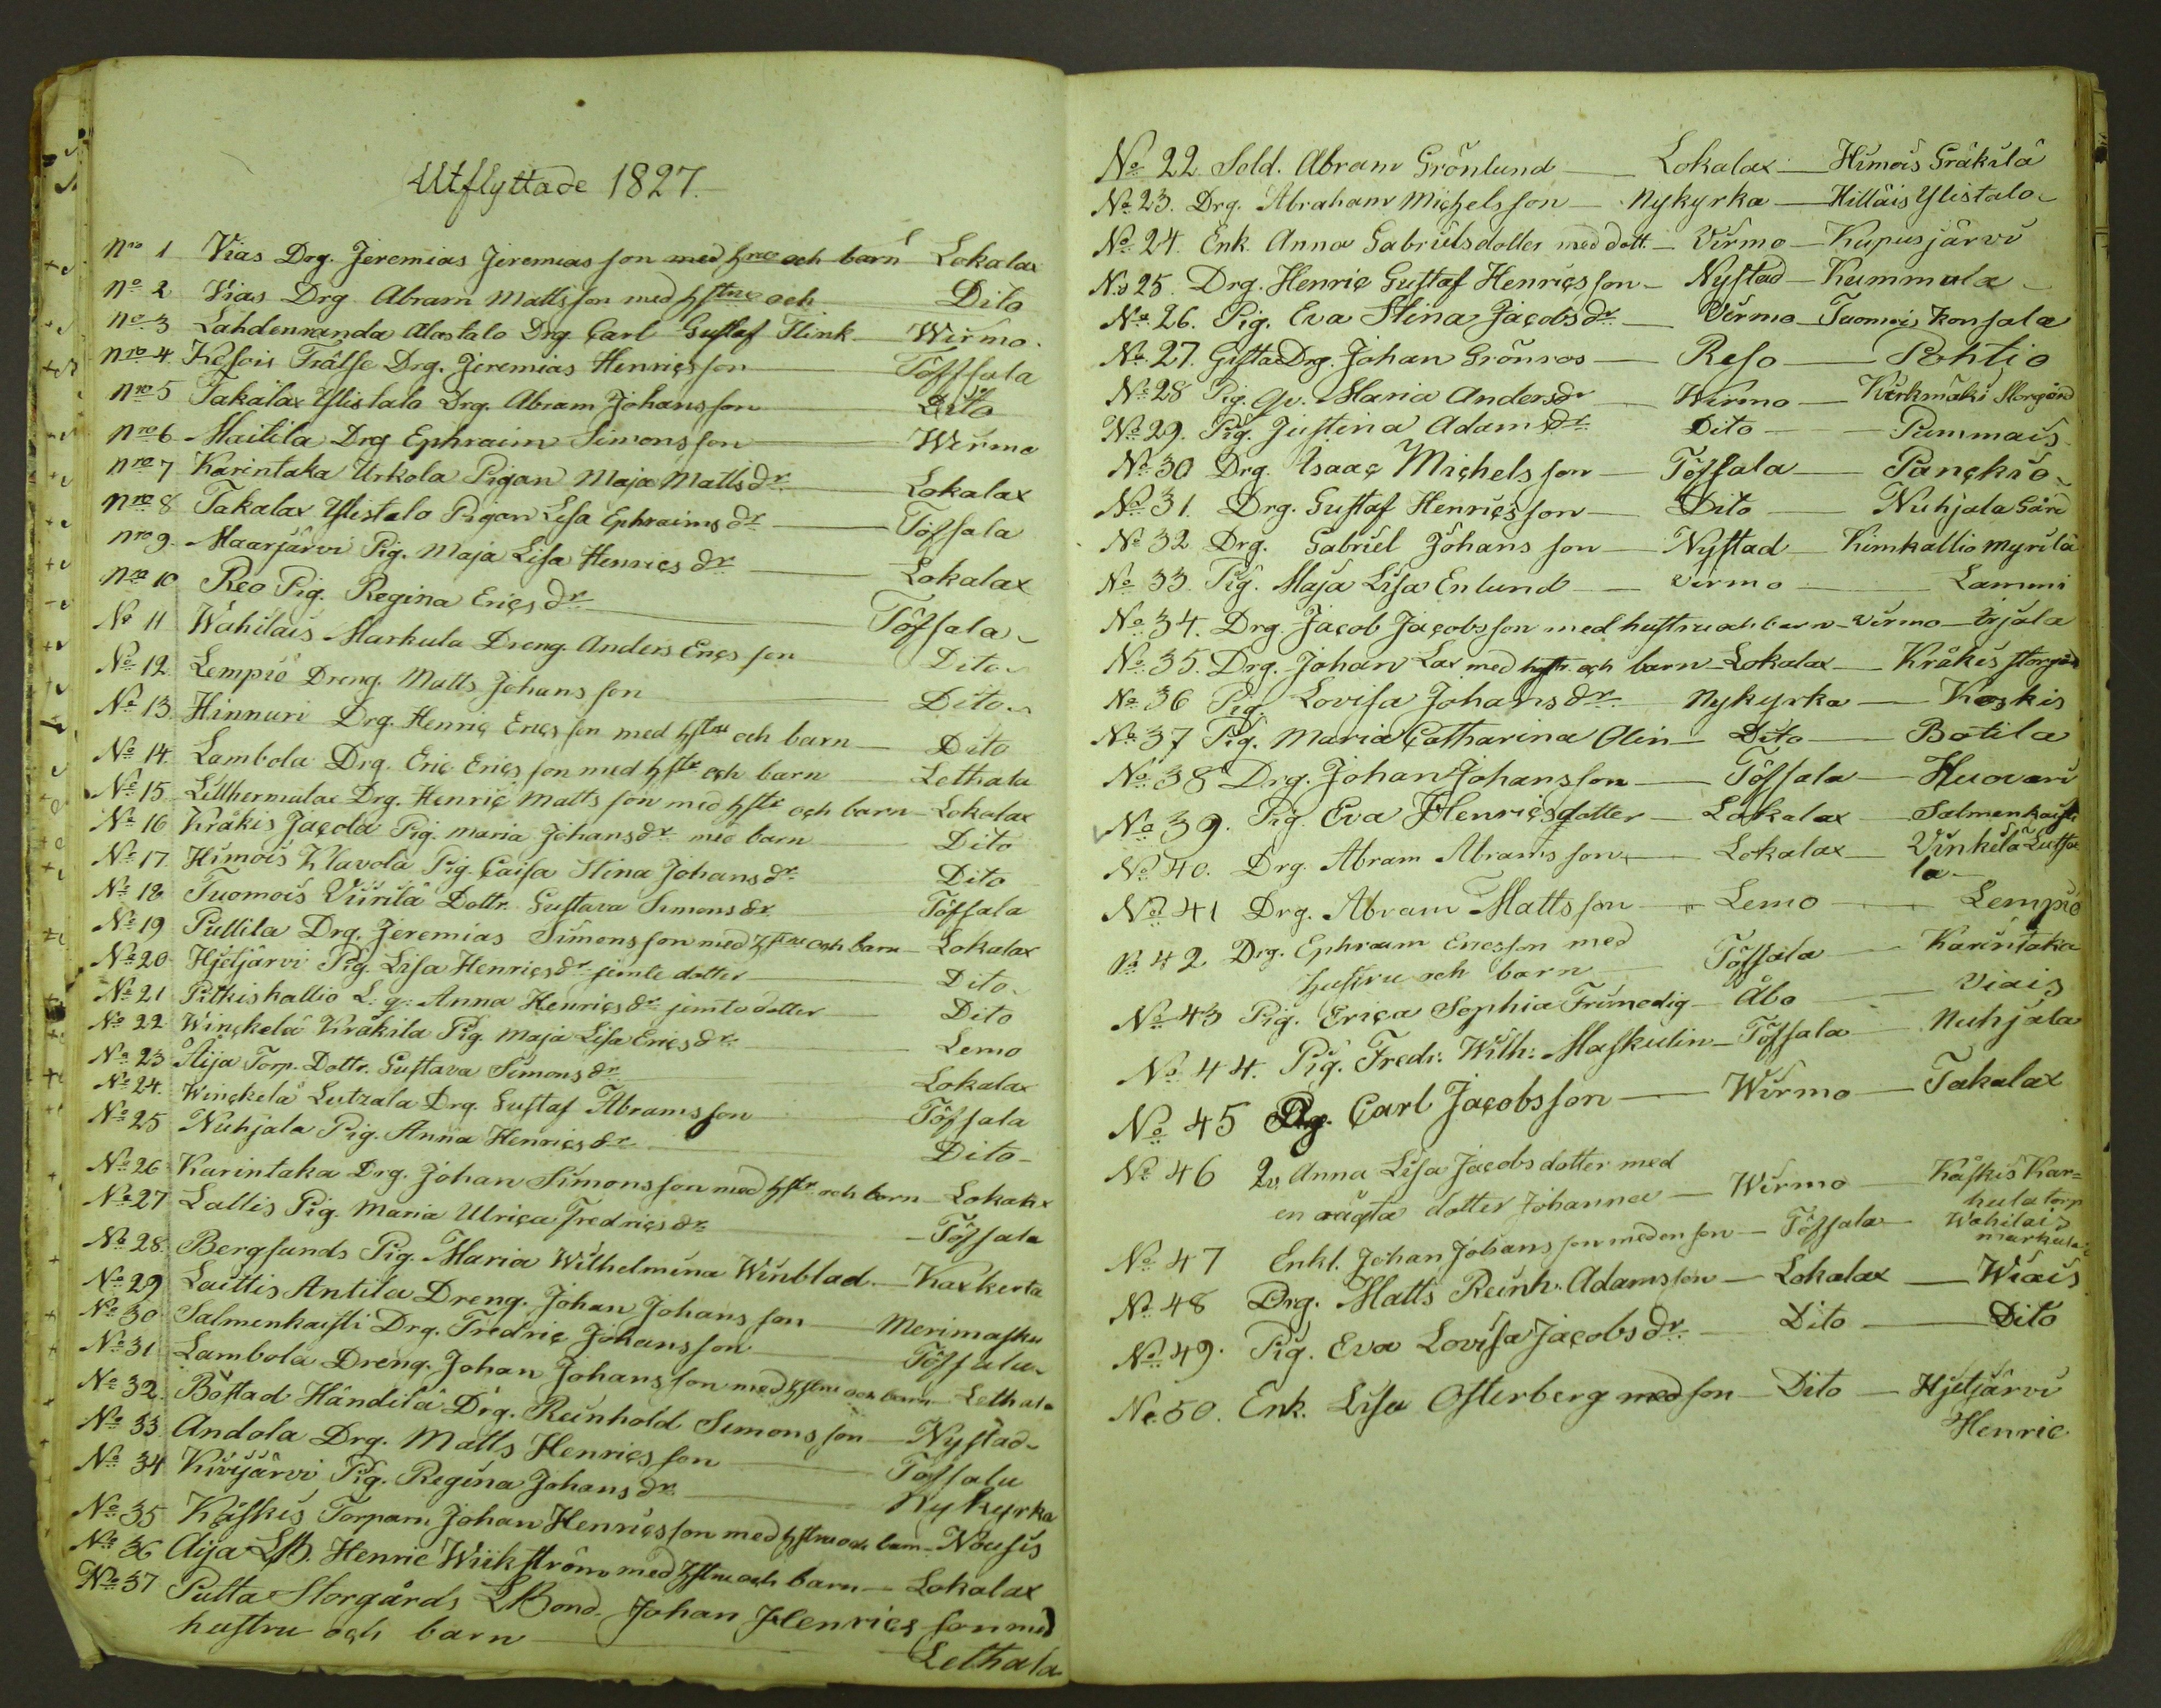 Utflyttade 1827.
nro 1 Vias Drg. Jeremias Jeremias son med hru och barn Lokalax
no 2 Vias Drg Abram Mattsson med hstru och Dito
no 3 Lahdenranda Alastalo Drg Carl Gustaf Flink Wirmo.
nro 4. Trälse Drg. Jeremias Henricsson Töfsala
nro 5 Takalax Ylistalo Drg. Abram Johansson Dito
nro 6 Maitila Drg Ephraim Simonsson Wirmo
nro 7 Karintaka Urkola Pigan Maja Mattsdr Lokalax
nro 8 Takalax Ylistalo Pigan Lisa Ephraimsdr Töfsala
nro 9. Maarjärvi Pig. Maja Lisa Henricsdr Lokalax
nro 10 Reo Pig. Regina Ericsdr Töfsala
No 11 Wähilais Markula Dreng Anders Ericsson Dito
No 12. Lempiö Dreng. Matts Johansson Dito
No 13. Hinnuri Drg. Henric Ericsson med hstru och barn Dito
No 14. Lambola Drg. Eric Ericsson med hstr och barn Lethala
No 15 Lillhermalax Drg. Henric Mattsson med hstr och barn Lokalax
No 16 Kråkis Jacola Pig. Maria Johansdr med barn Dito
No 17 Himois Klavola Pig. Caisa Stina Johansdr Dito
No 18 Tuomois Viirilä Dottr. Gustava Simonsdr Töfsala
No 19 Pullila Drg. Jeremias Simonsson med hstru och barn Lokalax
No 20 Hjeljärvi Pig. Lisa Henricsdr jemte dotter Dito
No 21 Pitkiskallio L: q: Anna Henricsdr jemte dotter Dito
No 22 Winckelä Kråkila Pig. Maja Lisa Ericsdr Lemo
No 23 Äija Torp. Dottr. Gustava Simonsdr Lokalax
No 24. Winckelä Lutzala Drg. Gustaf Abramsson Töfsala
No 25 Nuhjala Pig. Anna Henricsdr Dito
No 26 Karintaka Drg. Johan Simonsson med hstr och barn Lokalax
No 27 Lallis Pig. Maria Ulrica Fredricsdr Töfsala
No 28. Bergsunds Pig. Maria Wilhelmina Winblad Kaxkerta
No 29 Laittis Antila Dreng. Johan Johansson Merimasku
No 30 Salmenkaisti Drg. Fredric Johansson Töfsala
No 31 Lambola Dreng. Johan Johansson med hstru och barn Lethala
No 32. Böstad Händilä Drg. Reinhold Simonsson Nystad
No 33 Andola Drg. Matts Henricsson Töfsala
No 34 Kivijärvi Pig. Regina Johansdr Nykyrka
No 35 Käskis Torparn Johan Henricsson med hstru och barn Nousis
No 36 Aija LB. Henric Wiikström med hstru och barn Lokalax
No 37 Putta Storgårds LBond. Johan Henricsson med
hustru och barn Lethala
No 22 Sold. Abram Grönlund Lokalax Himois Gräkilä
No 23. Drg. Abraham Michelsson Nykyrka Hilläis Ylistalo
No 24. Enk. Anna Gabrielsdotter med dott. Virmo Kupusjärvi
No 25. Drg. Henric Gustaf Henricsson Nystad Kummala
No 26. Pig. Eva Stina Jacobsdr Virmo Tuomois Konsala
No 27. Gifta Drg. Johan Grönros Reso Pohtio
No 28 Pig. Qv. Maria Andersdr Wirmo Kirkmäki Storgård
No 29. Pig. Justina Adamsdr Dito Pummais
No 30 Drg. Isaac Michelsson Töfsala Panckiö
No 31. Drg. Gustaf Henricsson Dito Nuhjala Gård
No 32 Drg. Gabriel Johansson Nystad Kimkallio Myrilä
No 33. Pig. Maja Lisa Enlund Virmo Lammi
No 34. Drg. Jacob Jacobsson med hustru och barn Virmo Erjala
No 35. Drg. Johan Lax med hstr. och barn Lokalax Kråkis Storgård
No 36 Pig Lovisa Johansdr Nykyrka Koskis
No 37 Pig. Maria Catharina Olin Dito Botila
No 38 Drg. Johan Johansson Töfsala Huovari
No 39. Pig. Eva Henricsdotter Lokalax Salmenkaisti
No 40. Drg. Abram Abramsson Lokalax Vinkilä Lutsa
la
No 41 Drg. Abram Mattsson Lemo Lempiö
No 42 Drg. Ephraim Ericsson med
hustru och barn Töfsala Karintaka
No 43 Pig. Erica Sophia Frimodig Åbo Viais
No 44. Pig. Fredr: Wilh: Maskulin Töfsala Nuhjala
No 45 Drg. Carl Jacobsson Wirmo Takalax
No 46 Qv. Anna Lisa Jacobsdotter med
en oägta dotter Johanna Wirmo Käskis Kar=
hula torp
No 47 Enkl. Johan Johansson med en son Töfsala Wähilais
markula
No 48 Drg. Matts Reinh: Adamsson Lokalax Wiais
No 49. Pig. Eva Lovisa Jacobsdr. Dito Dito
No 50. Enk. Lisa Osterberg med son Dito Hjetjärvi
Henric